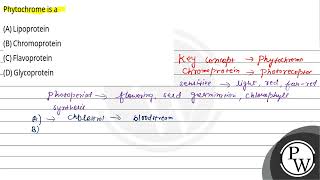 Phytochrome is a
(A) Lipoprotein
(B) Chromoprotein
(C) Flavoprotein
(D) Glycoprotein
Key concept → Phytochrome
Chromoprotein → Photoreceptor
sensitive → light, red, far-red
Photoperiod → flowering, seed germination, chlorophyll
synthesis
A) → cholesterol → bloodstream
B)
PW